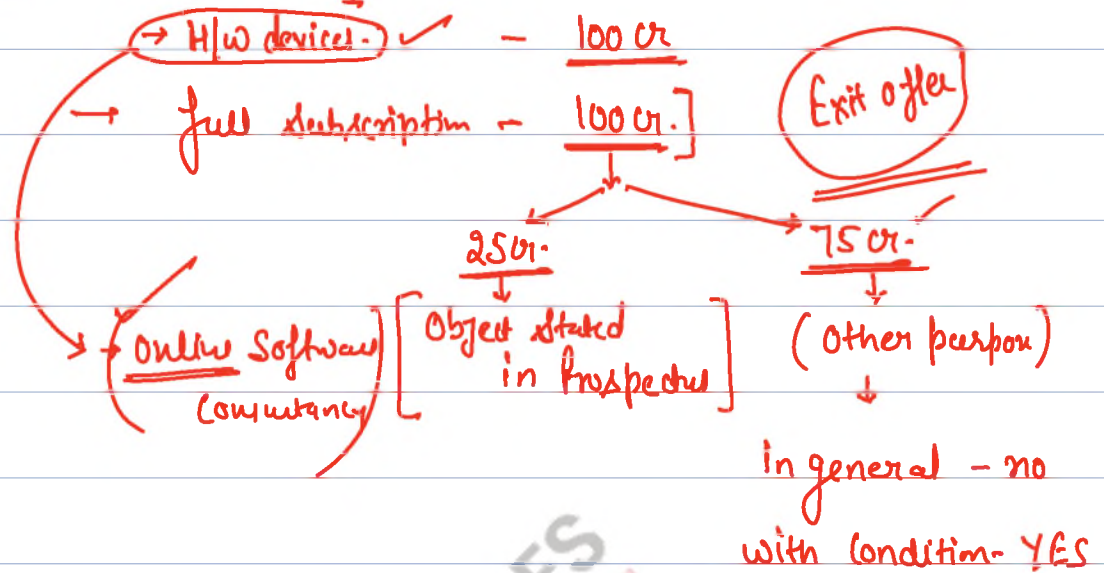 → H/W devices. ✓ - 100 cr
→ full subscription - 100 cr.]
Exit offer
25 cr.
75 cr.
→ Online Software
Consultancy
[Object stated
in Prospectus]
(Other purpose)
in general - no
with condition - YES
ES